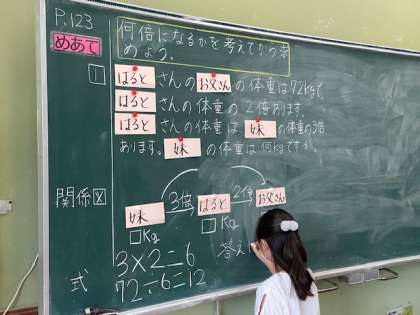 P.123
めあて 何倍になるかを考えてから求
めよう。
1 はるとさんのお父さんの体重は72kgで
はるとさんの体重の2倍あります。
はるとさんの体重は妹の体重の3倍
あります。妹の体重は何kgですか。
関係図
3倍 2倍
妹 はると お父さん
□Kg □Kg
答え
式 3×2=6
72÷6=12